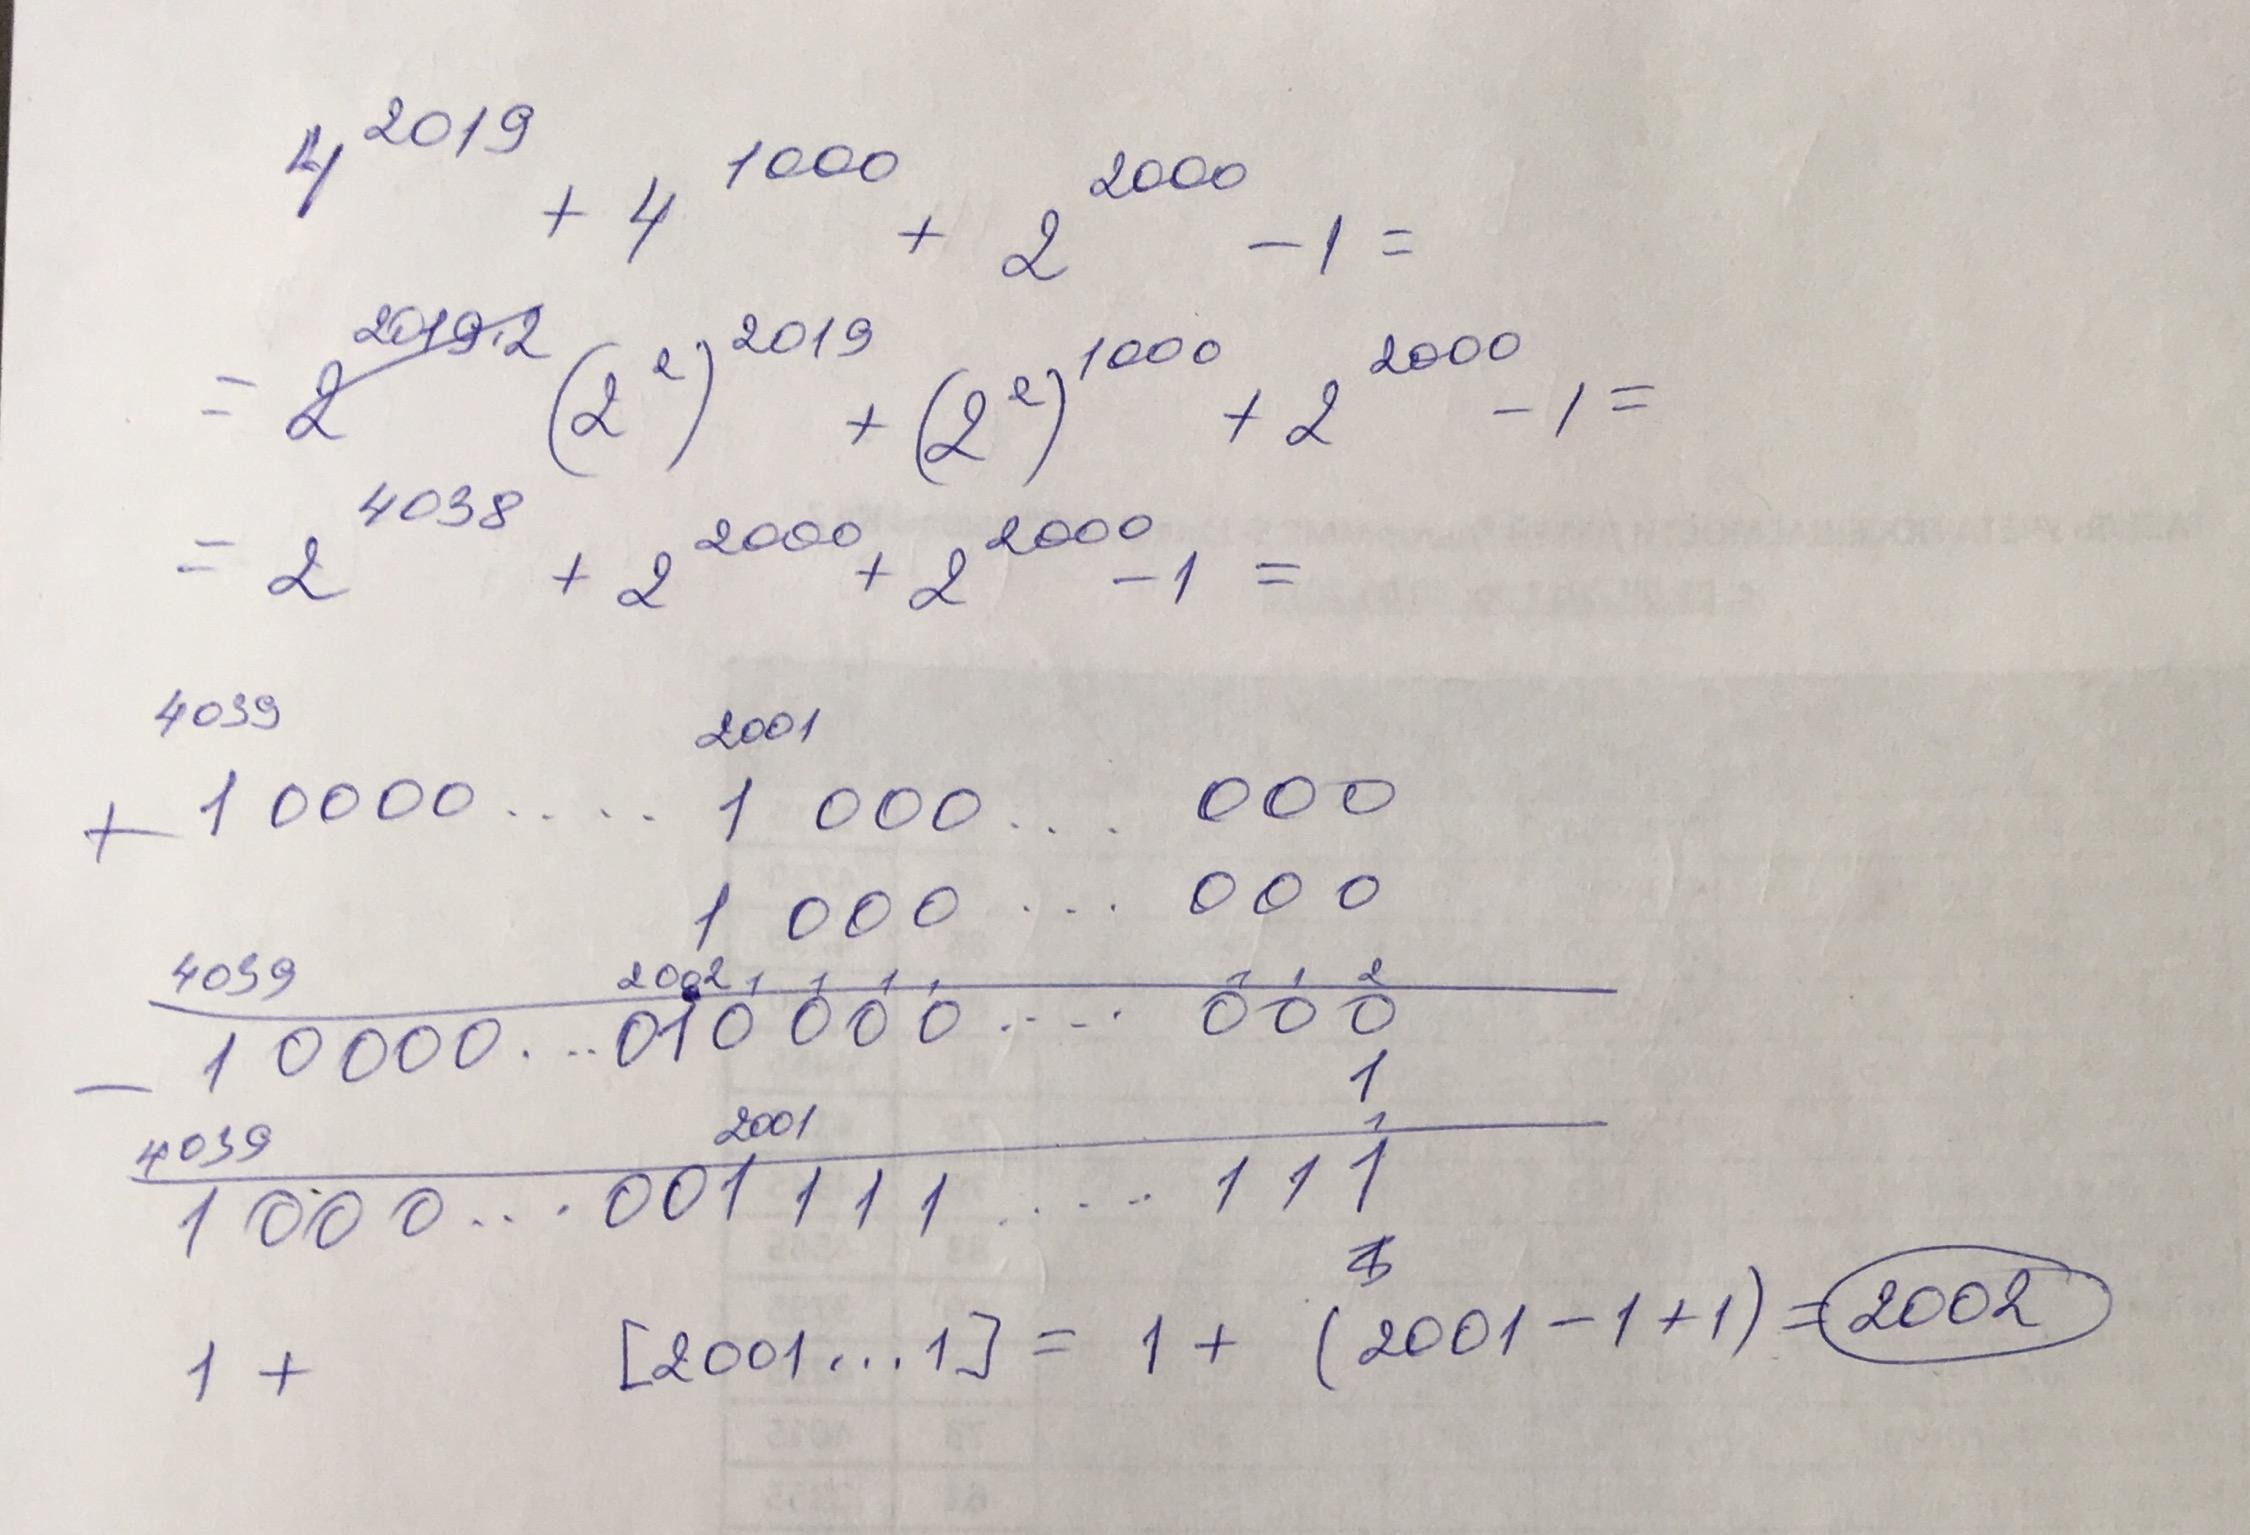 4^2019 + 4^1000 + 2^2000 - 1 =
= 2^2019·2 (2^2)^2019 + (2^2)^1000 + 2^2000 - 1 =
= 2^4038 + 2^2000 + 2^2000 - 1 =
4039 2001
+ 1 0000.... 1 000... 000
1 000 ... 000
4039 2002 1 1 1 1 1 1 2
1 0000...010 000.... 000
- 1
4039 2001 1
1 000....001 111.... 111
1 + [2001...1] = 1 + (2001 - 1 + 1) = 2002